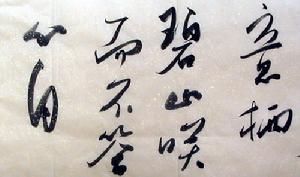 意栖
碧山笑
而不答
心自